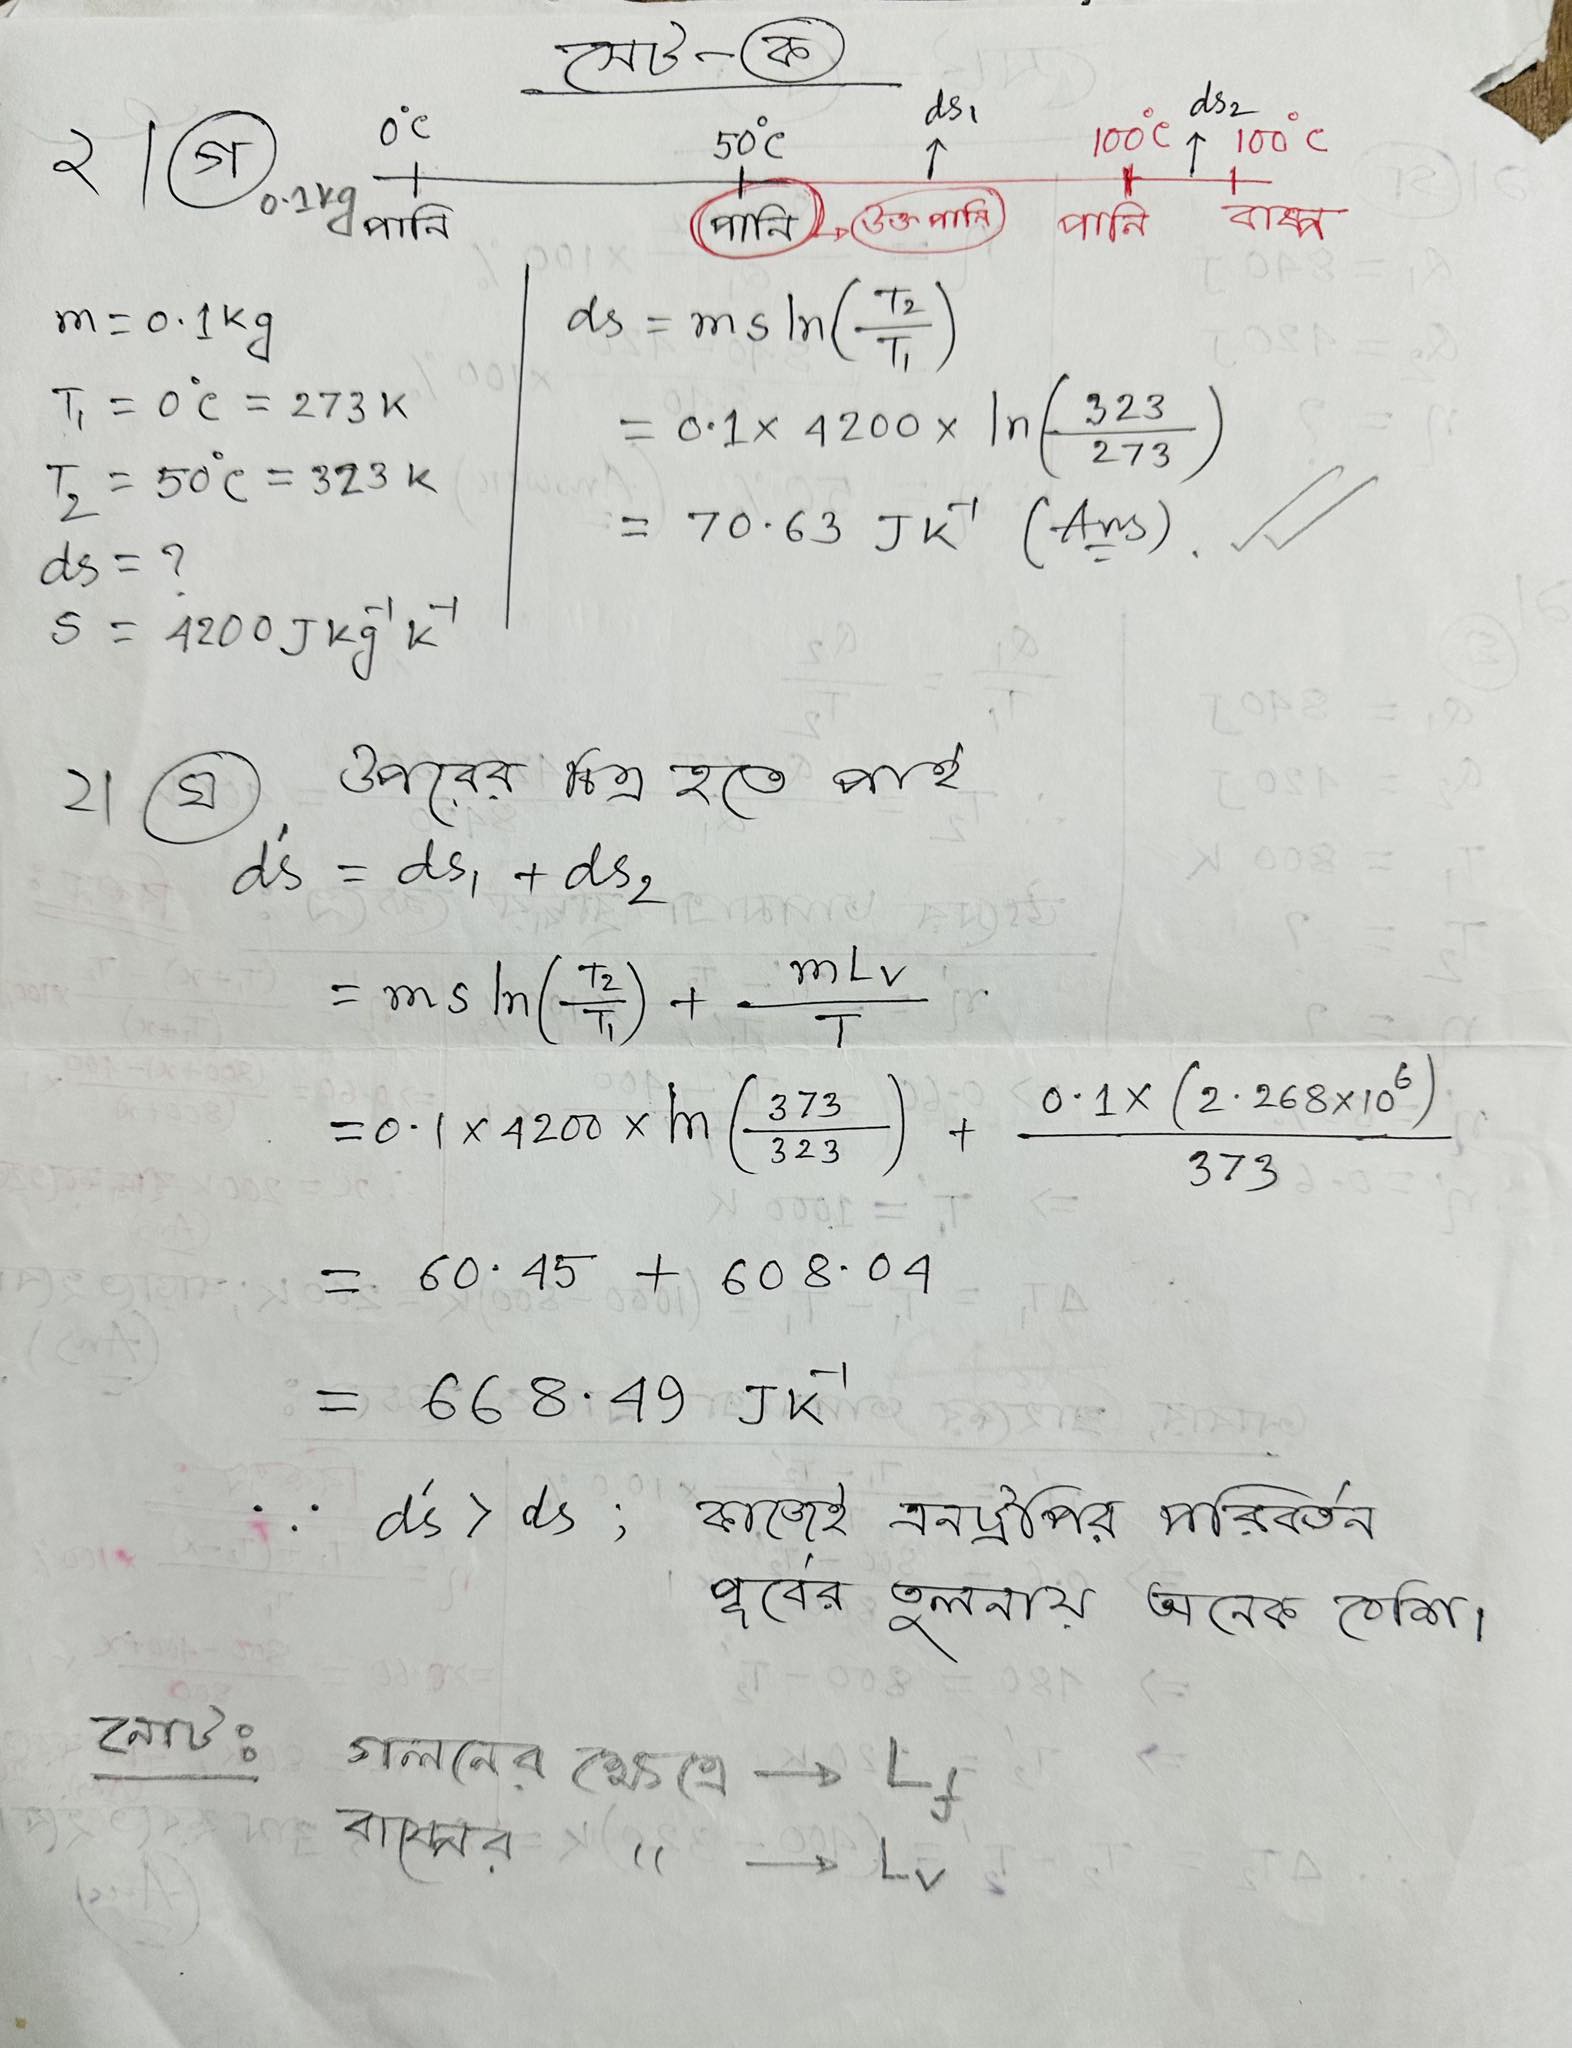 সেট-ক
২। গ
0°C 50°C ds₁ 100°C ds₂ 100°C
0.1kg পানি পানি → উক্ত পানি পানি বাষ্প
m = 0.1kg
T₁ = 0°C = 273K
T₂ = 50°C = 323K
ds = ?
S = 4200Jkg⁻¹K⁻¹
ds = ms ln(T₂/T₁)
= 0.1 × 4200 × ln(323/273)
= 70.63 JK⁻¹ (Ans).
২। ঘ উপরের চিত্র হতে পাই
ds' = ds₁ + ds₂
= ms ln(T₂/T₁) + mLv/T
= 0.1 × 4200 × ln(373/323) + 0.1×(2.268×10⁶)/373
= 60.45 + 608.04
= 668.49 JK⁻¹
∴ ds' > ds ; কাজেই এনট্রপির পরিবর্তন
পূর্বের তুলনায় অনেক বেশি।
নোট: গলনের ক্ষেত্রে → Lf
বাষ্পের " → Lv